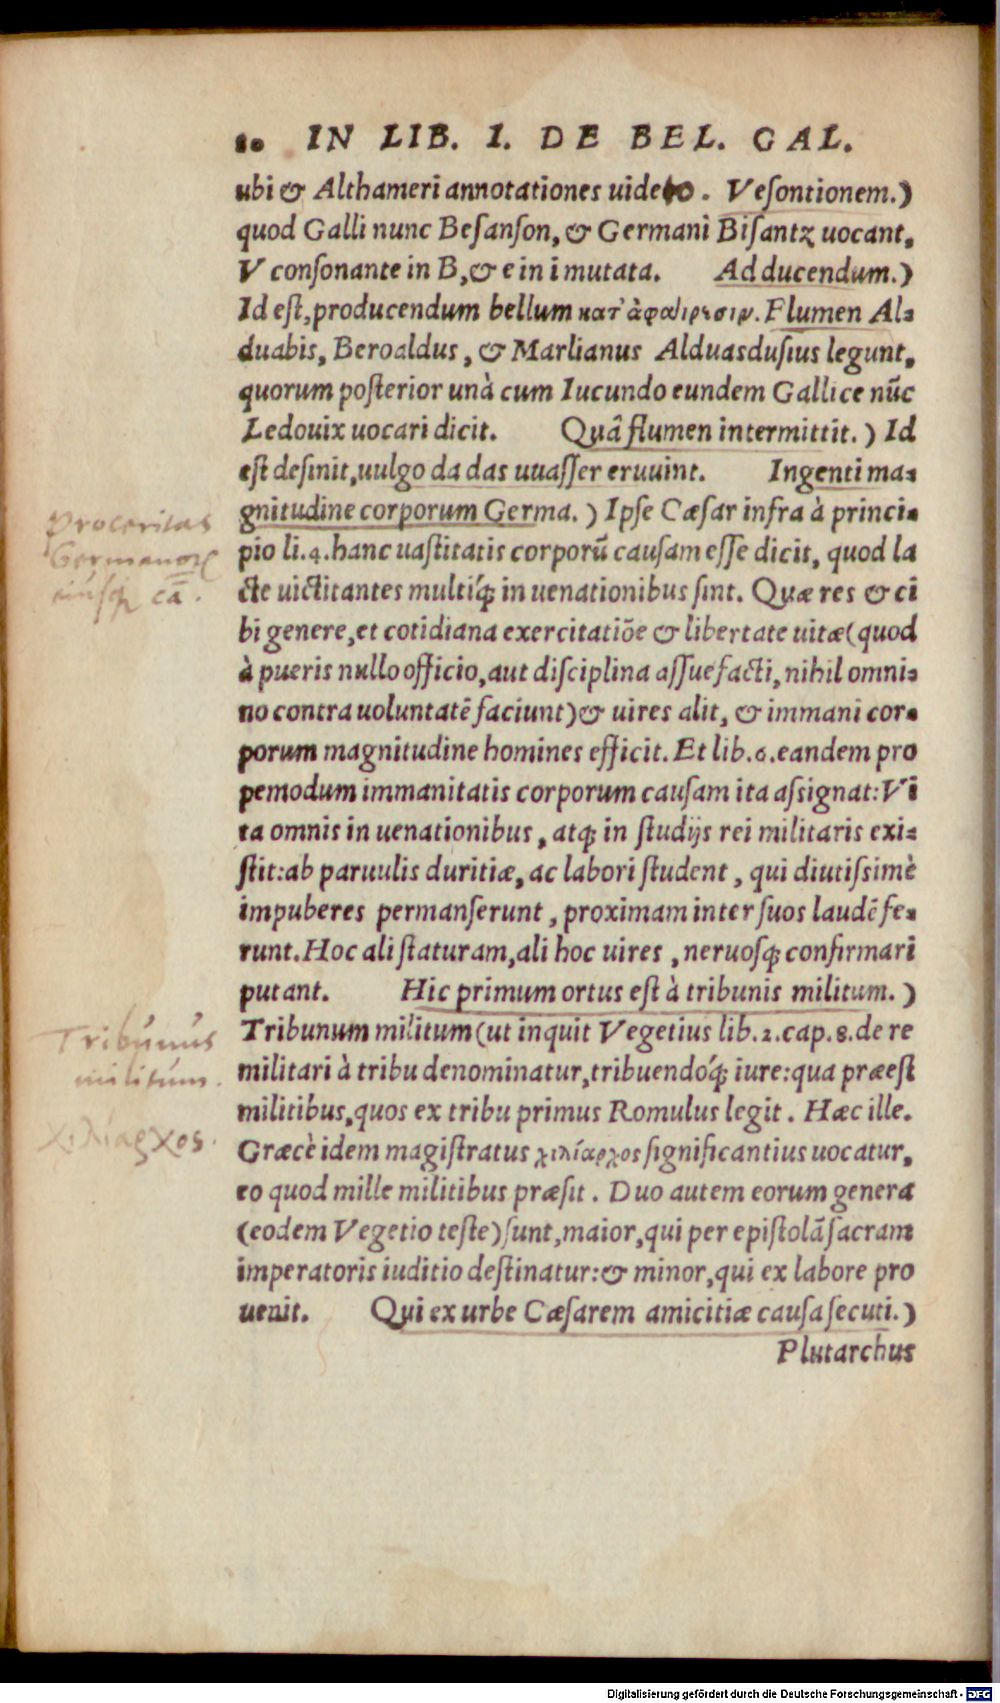 80 IN LIB. I. DE BEL. GAL.
ubi & Althameri annotationes uideto. Vesontionem.)
quod Galli nunc Besanson, & Germani Bisantz uocant,
V consonante in B, & e in i mutata. Ad ducendum.)
Id est, producendum bellum κατ' ἀφαίρεσιν. Flumen Al-
duabis, Beroaldus, & Marlianus Alduasdusius legunt,
quorum posterior unà cum Iucundo eundem Gallice nūc
Ledouix uocari dicit. Quâ flumen intermittit.) Id
est desinit, uulgo da das uuasser eruuint. Ingenti ma-
gnitudine corporum Germa.) Ipse Cæsar infra à princi-
pio li.4. hanc uastitatis corporū causam esse dicit, quod la
cte uictitantes multiq́; in uenationibus sint. Quæ res & ci
bi genere, et cotidiana exercitatiōe & libertate uitæ (quod
à pueris nullo officio, aut disciplina assuefacti, nihil omni-
no contra uoluntatē faciunt) & uires alit, & immani cor-
porum magnitudine homines efficit. Et lib.6. eandem pro
pemodum immanitatis corporum causam ita assignat: Vi
ta omnis in uenationibus, atq; in studijs rei militaris exi-
stit: ab paruulis duritiæ, ac labori student, qui diutissimè
impuberes permanserunt, proximam inter suos laudē fe-
runt. Hoc ali staturam, ali hoc uires, neruosq; confirmari
putant. Hic primum ortus est à tribunis militum.)
Tribunum militum (ut inquit Vegetius lib.2. cap.8. de re
militari à tribu denominatur, tribuendóq́; iure: qua præest
militibus, quos ex tribu primus Romulus legit. Hæc ille.
Græcè idem magistratus χιλίαρχος significantius uocatur,
eo quod mille militibus præsit. Duo autem eorum genera
(eodem Vegetio teste) sunt, maior, qui per epistolā sacram
imperatoris iuditio destinatur: & minor, qui ex labore pro
uenit. Qui ex urbe Cæsarem amicitiæ causa secuti.)
Plutarchus
Proceritas
Germanorꝝ
eiusq; cā.
Tribunus
militum.
χιλίαρχος.
Digitalisierung gefördert durch die Deutsche Forschungsgemeinschaft - DFG